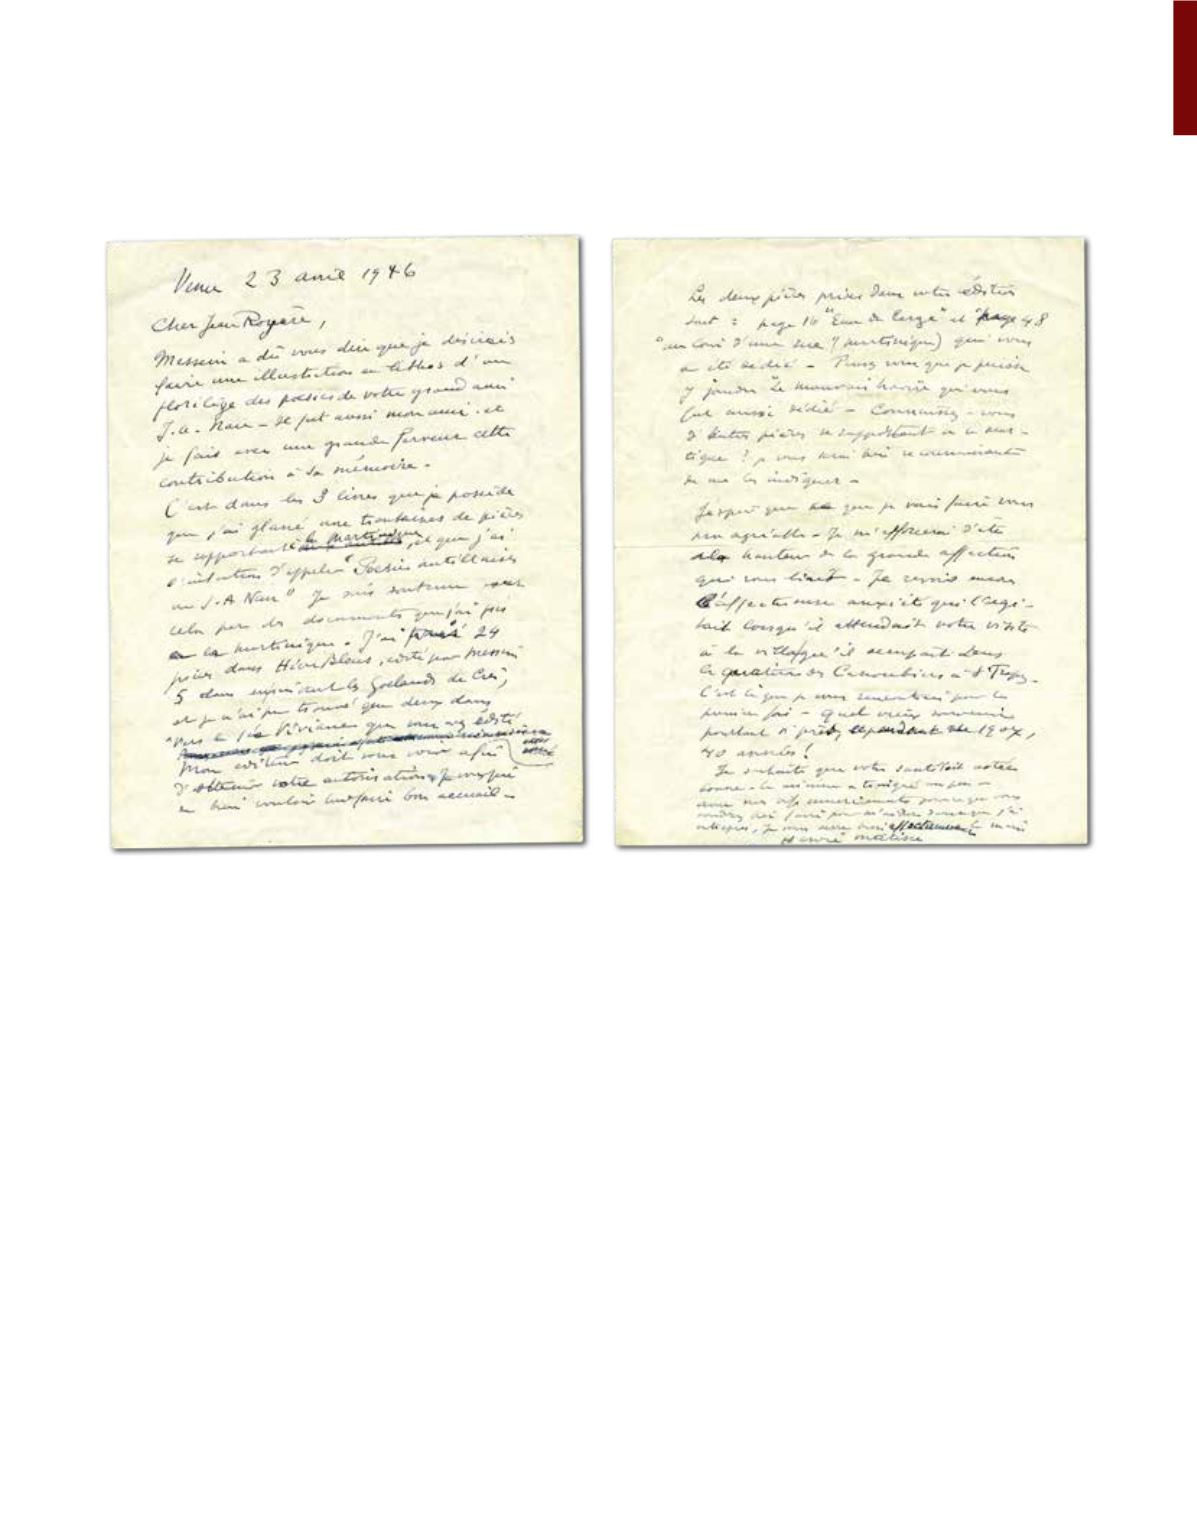 Vence 23 avril 1946
Cher Jean Royère,
Messein a dû vous dire que je désirais
faire une illustration en lithos d'un
florilège des poésies de votre grand ami
J.A. Nau – Il fut aussi mon ami et
je fais avec une grande ferveur cette
contribution à sa mémoire.
C'est dans les 3 livres que je possède
que j'ai glané une trentaines de pièces
se rapportant à la martinique, et que j'ai
l'intention d'appeler "Poésies antillaises
de J.A Nau" Je suis soutenu
cela par des documents que j'ai pris
à la martinique. J'ai trouvé 24
pièces dans Hiers Bleus, édité par Messein
5 dans les Goelands de Crès,
et je n'ai pu trouvé que deux dans
"Vers la fée Viviane que vous avez édité
Mon éditeur doit vous voir afin
d'obtenir votre autorisation, Je vous prie
de bien vouloir lui faire bon accueil –
Les deux pièces prises dans votre édition
sont : page 16 et page 48
(martinique) qui vous
a été dédié – Pensez vous que je puisse
y joindre qui vous
fut aussi dédié – Connaissez-vous
d'autres pièces se rapportant à la mar-
tique ? je vous serai bien reconnaissant
de me les indiquer –
J'espère que ce que je vais faire vous
sera agréable – Je m'efforcerai d'être
à la hauteur de la grande affection
qui vous liait – Je revois encore
l'affectueuse anxiété qui l'agi-
tait lorsqu'il attendait votre visite
à la villa qu'il occupait dans
le quartier des Canoubiers à St Tropez –
C'est là que je vous rencontrai pour la
première fois – Quel vieux souvenir
pourtant si près, cependant de 1904,
40 années !
Je souhaite que votre santé soit
bonne – la mienne a
avec mes vifs remerciements pour ce que vous
voudrez bien faire pour
je vous serre bien affectueusement la main
Henri Matisse